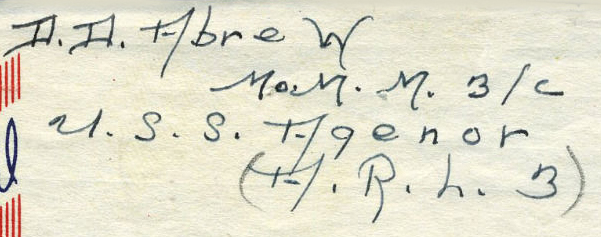 D.D. Abrew
Mo.M.M. 3/c
U.S.S. Agenor
(A.R.L. 3)